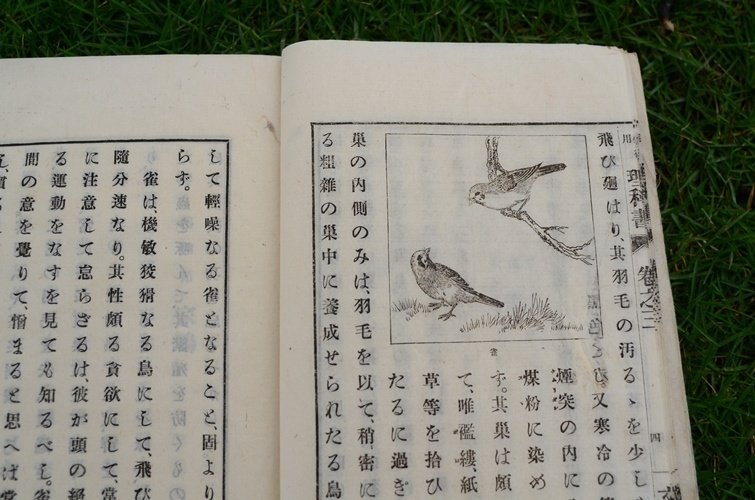 理科書 卷之三
四
飛び廻はり、其羽毛の汚るゝを少し
又寒冷の
煙突の内に
煤粉に染め
す。其巢は頗
て、唯襤縷、紙
草等を拾ひ
たるに過ぎ
雀
巢の内側のみは、羽毛を以て、稍密に
る粗雜の巢中に養成せられたる鳥
して輕躁なる雀となること、固より
らす。
雀は、機敏狡猾なる鳥にして、飛び
隨分速なり。其性頗る貪欲にして、常
に注意して怠らざるは、彼が頭の絶
る運動をなすを見ても知るべし。雀
間の意を覺りて、憎まると思へば